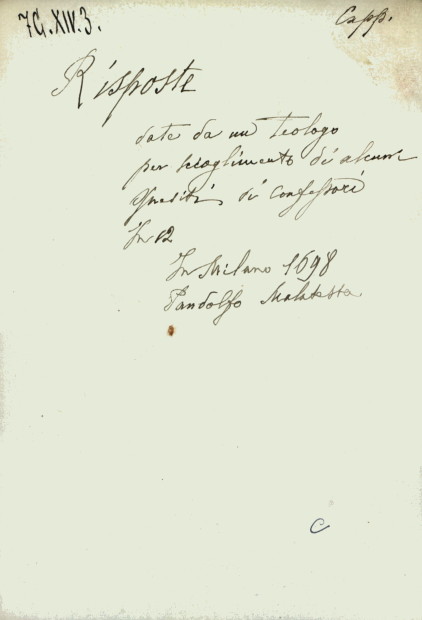 7G.XIV.3.
Capp.
Risposte
date da un Teologo
per scioglimento di alcuni
Quesiti di Confessori
In 12
In Milano 1698
Pandolfo Malatesta
C